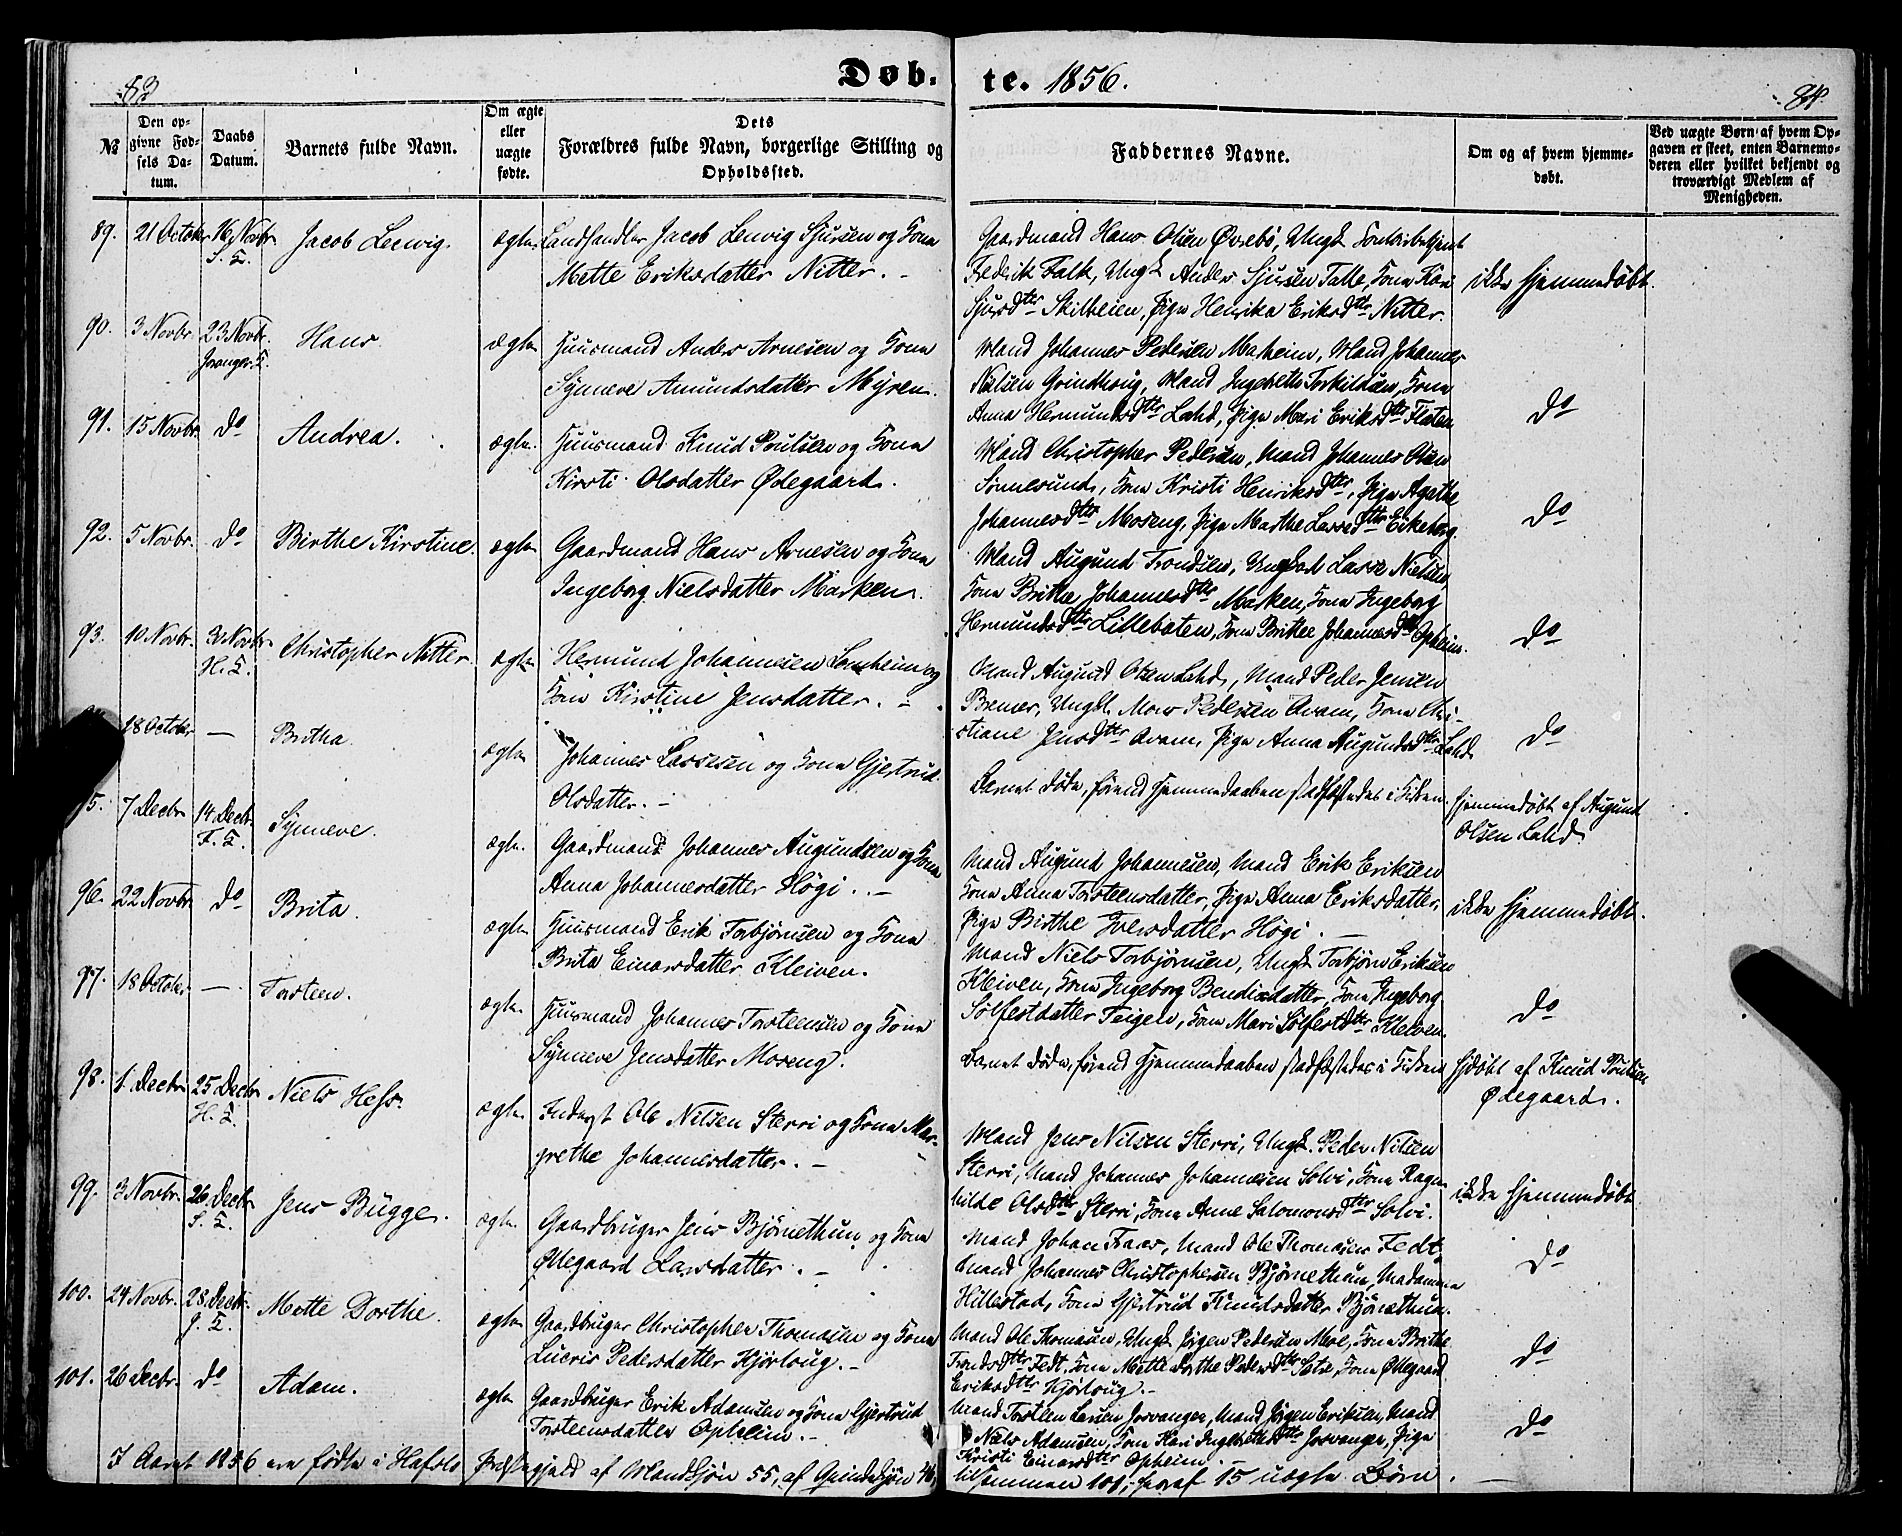 83
Døb-
te. 1856.
84.
№
Den opgivne Fødsels Datum.
Daabs Datum.
Barnets fulde Navn.
Om ægte eller uægte fødte.
Dets Forældres fulde Navn, borgerlige Stilling og Opholdssted.
Faddernes Navne.
Om og af hvem hjemmedøbt.
Ved uægte Børn af hvem Opgaven er skeet, enten Barnemoderen eller hvilket bekjendt og troværdigt Medlem af Menigheden.
89. 21 October 16 Novbr. Jacob Lecwig. ægte Landhandler Jacob Lecvig Sjursen og Kone
Mette Eriksdatter Nitter.
Gaardmand Hans Olsen Øvrebö, Ungk.
Frederik Falk, Ungk Anders Sjursen Talle, Kone Kari
Sjursdtr Skilheien, Pige Henrika Eriksdtr Nitter.
ikke hjemmedøbt.
90. 3 Novbr. 23 Novbr. Hans. ægte Huusmand Anders Arnesen og Kone
Synneve Amundsdatter Myren.
Mand Johannes Pedersen Maheim, Mand Johannes
Nielsen Grindhoug, Mand Ingebreth Torkildsen, Kone
Anna Hermundsdtr Lahd, Pige Mari Eriksdtr Flaten
do
91. 15 Novbr. do Andrea. ægte. Huusmand Knud Poulsen og Kone
Kirsti Olsdatter Ødegaard.
Mand Christopher Pedersen, Mand Johannes Olsen
Sønnesund, Kone Kristi Henriksdtr, Pige Agathe
Johannesdtr Moseng, Pige Marthe Lassedtr Eikeberg.
do
92. 5 Novbr. do Birthe Kirstine. ægte Gaardmand Hans Arnesen og Kone
Ingeborg Nielsdatter Marken.
Mand Augund Trondsen, Ungkarl Lasse Nielsen,
Kone Brithe Johannesdtr Marken, Kone Ingeborg
Hermundsdtr Lillebøten, Kone Brithe Johannesdtr Opheim.
do
93. 10 Novbr. 30 Novbr. H. K. Christopher Nitter. ægte Hermund Johannesen Lomheim og
Kone Kirstine Jensdatter.
Mand Augund Olsen Lahd, Mand Peder Jensen
Bremer, Ungk. Mons Pedersen Kvam, Kone Chri-
stiane Jensdtr Kvam, Pige Anna Augundsdtr Lahd
do
18 October — Britha. ægte Johannes Lassesen og Kone Gjertrud
Olsdatter.
Barnet døde, førend Hjemmedaaben stadfæstedes i Kirken.
hjemmedøbt af Augund
Olsen Lahd.
95. 7 Decbr 14 Decbr F. K. Synneve. ægte. Gaardmand Johannes Augundsen og Kone
Anna Johannesdatter Högi.
Mand Augund Johannesen, Mand Erik Eriksen
Kone Anna Torsteensdatter, Pige Anna Eriksdatter,
Pige Birthe Iversdatter Högi.
ikke hjemmedøbt.
96. 22 Novbr. do Brita. ægte Huusmand Erik Torbjørnsen og Kone
Brita Einarsdatter Kleiven.
Mand Niels Torbjørnsen, Ungk. Torbjørn Eriksen
Kleiven, Kone Ingeborg Bendixdatter, Kone Ingeborg
Sølfestdatter Feigen, Kone Mari Sølfestdtr Kleiven.
do
97. 18 October — Torsteen. ægte. Huusmand Johannes Torsteensen og Kone
Synneve Jensdatter Moseng.
Barnet døde, førend Hjemmedaaben stadfæstedes i Kirken
hjdøbt af Knud Poulsen
Ødegaard.
98. 1. Decbr 25 Decbr H. K. Niels Hess. ægte Inderst Ole Nilsen Sterri og Kone Mar-
grethe Johannesdatter.
Mand Jens Nilsen Sterri, Ungk. Peder Nilsen
Sterri, Mand Johannes Johannesen Solvi, Kone Ragn-
hilde Olsdtr Sterri, Kone Anne Salomonsdtr Solvi.
ikke hjemmedøbt
99. 3 Novbr. 26 Decbr S. K. Jens Bügge. ægte Gaardbruger Jens Bjørnethun og Kone
Ødegaard Larsdatter.
Mand Johan Faar, Mand Ole Thomasen Fedt,
Mand Johannes Christophersen Bjørnethun, Madamme
Hillestad, Kone Gjertrud Knudsdatter Bjørnethun.
do
100. 24 Novbr. 28 Decbr. J. K. Mette Dorthe. ægte Gaardbruger Christopher Thomasen og Kone
Lucris Pedersdatter Hjørloug.
Mand Ole Thomasen, Ungk. Jørgen Pedersen Moe, Kone Brithe
Trondsdtr Fedt, Kone Mette Dorthe Pedersdtr Sætre, Kone Ødegaard
Eriksdtr Hjørloug.
do
101. 26 Decbr. do Adam. ægte Gaardbruger Erik Adamsen og Kone Gjertrud
Torsteensdatter Opheim.
Mand Torsteen Larsen Josvanger, Mand Jörgen Eriksen, Mand
Niels Adamsen, Kone Kari Ingebrethsdtr Josvanger, Pige
Kristi Einarsdtr Opheim.
do
I Aaret 1856 ere fødte i Hafslo Præstegjeld af Mandkjøn 55, af Qvindekjøn 46,
tilsammen 101, hvoraf 15 uægte Børn.